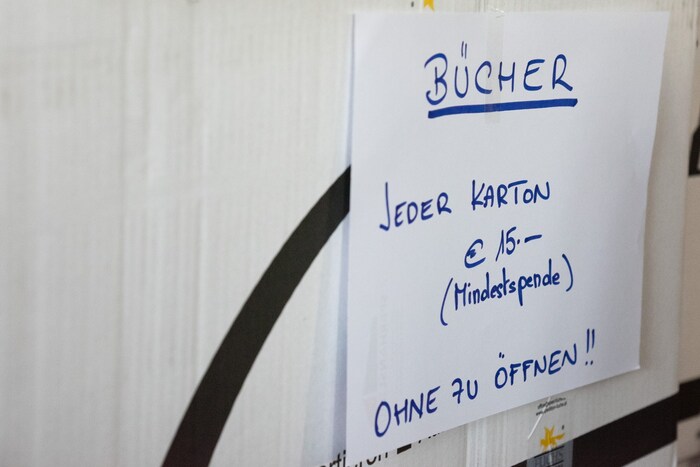 BÜCHER
JEDER KARTON
€ 15.–
(Mindestspende)
OHNE ZU ÖFFNEN!!